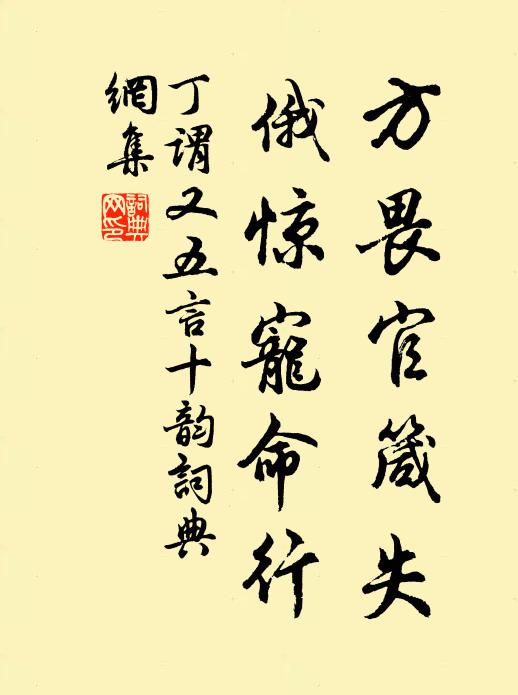 方畏官箴失
俄惊寵命行
丁谓又五言十韵詞典
網集
詞典
网印